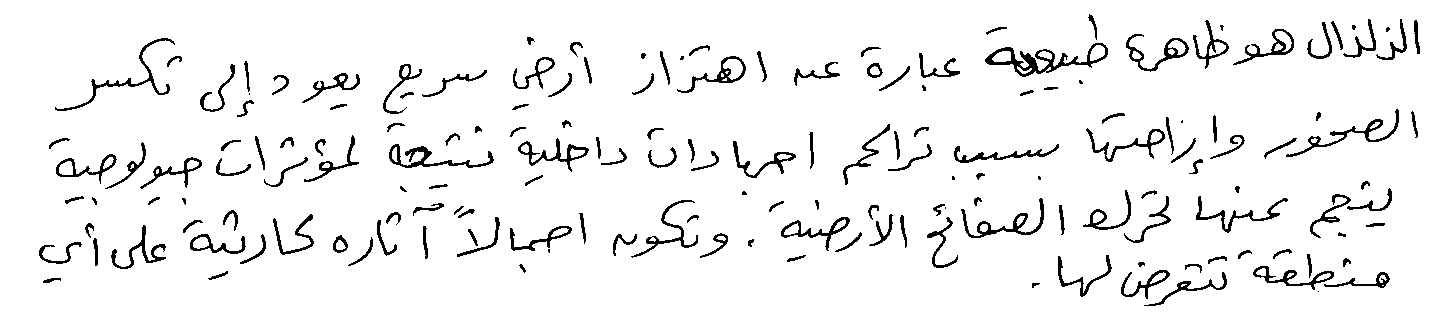 الزلزال هو ظاهرة طبيعية عبارة عن اهتزاز أرضي سريع يعود إلى تكسر
الصخور وإزاحتها بسبب تراكم اجهادات داخلية نتيجة لمؤثرات جيولوجية
ينجم عنها تحرك الصفائح الأرضية. وتكون اجمالاً آثاره كارثية على أي
منطقة تتعرض لها.